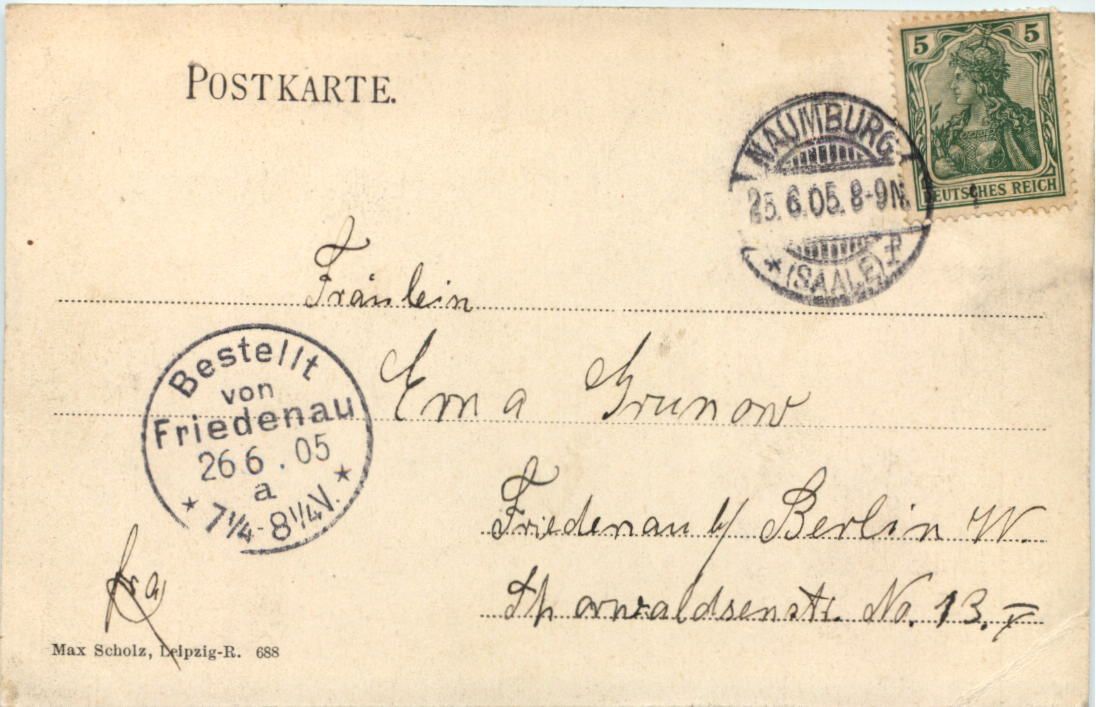 POSTKARTE.
5 5
DEUTSCHES REICH
NAUMBURG
25.6.05. 8-9N.
* (SAALE)
Fräulein
Erna Grunow
Friedenau b/ Berlin W.
Thorwaldsenstr. No. 13. I
Bestellt
von
Friedenau
26 6 . 05
a
* 7 1/4-8 1/4V. *
Max Scholz, Leipzig-R. 688